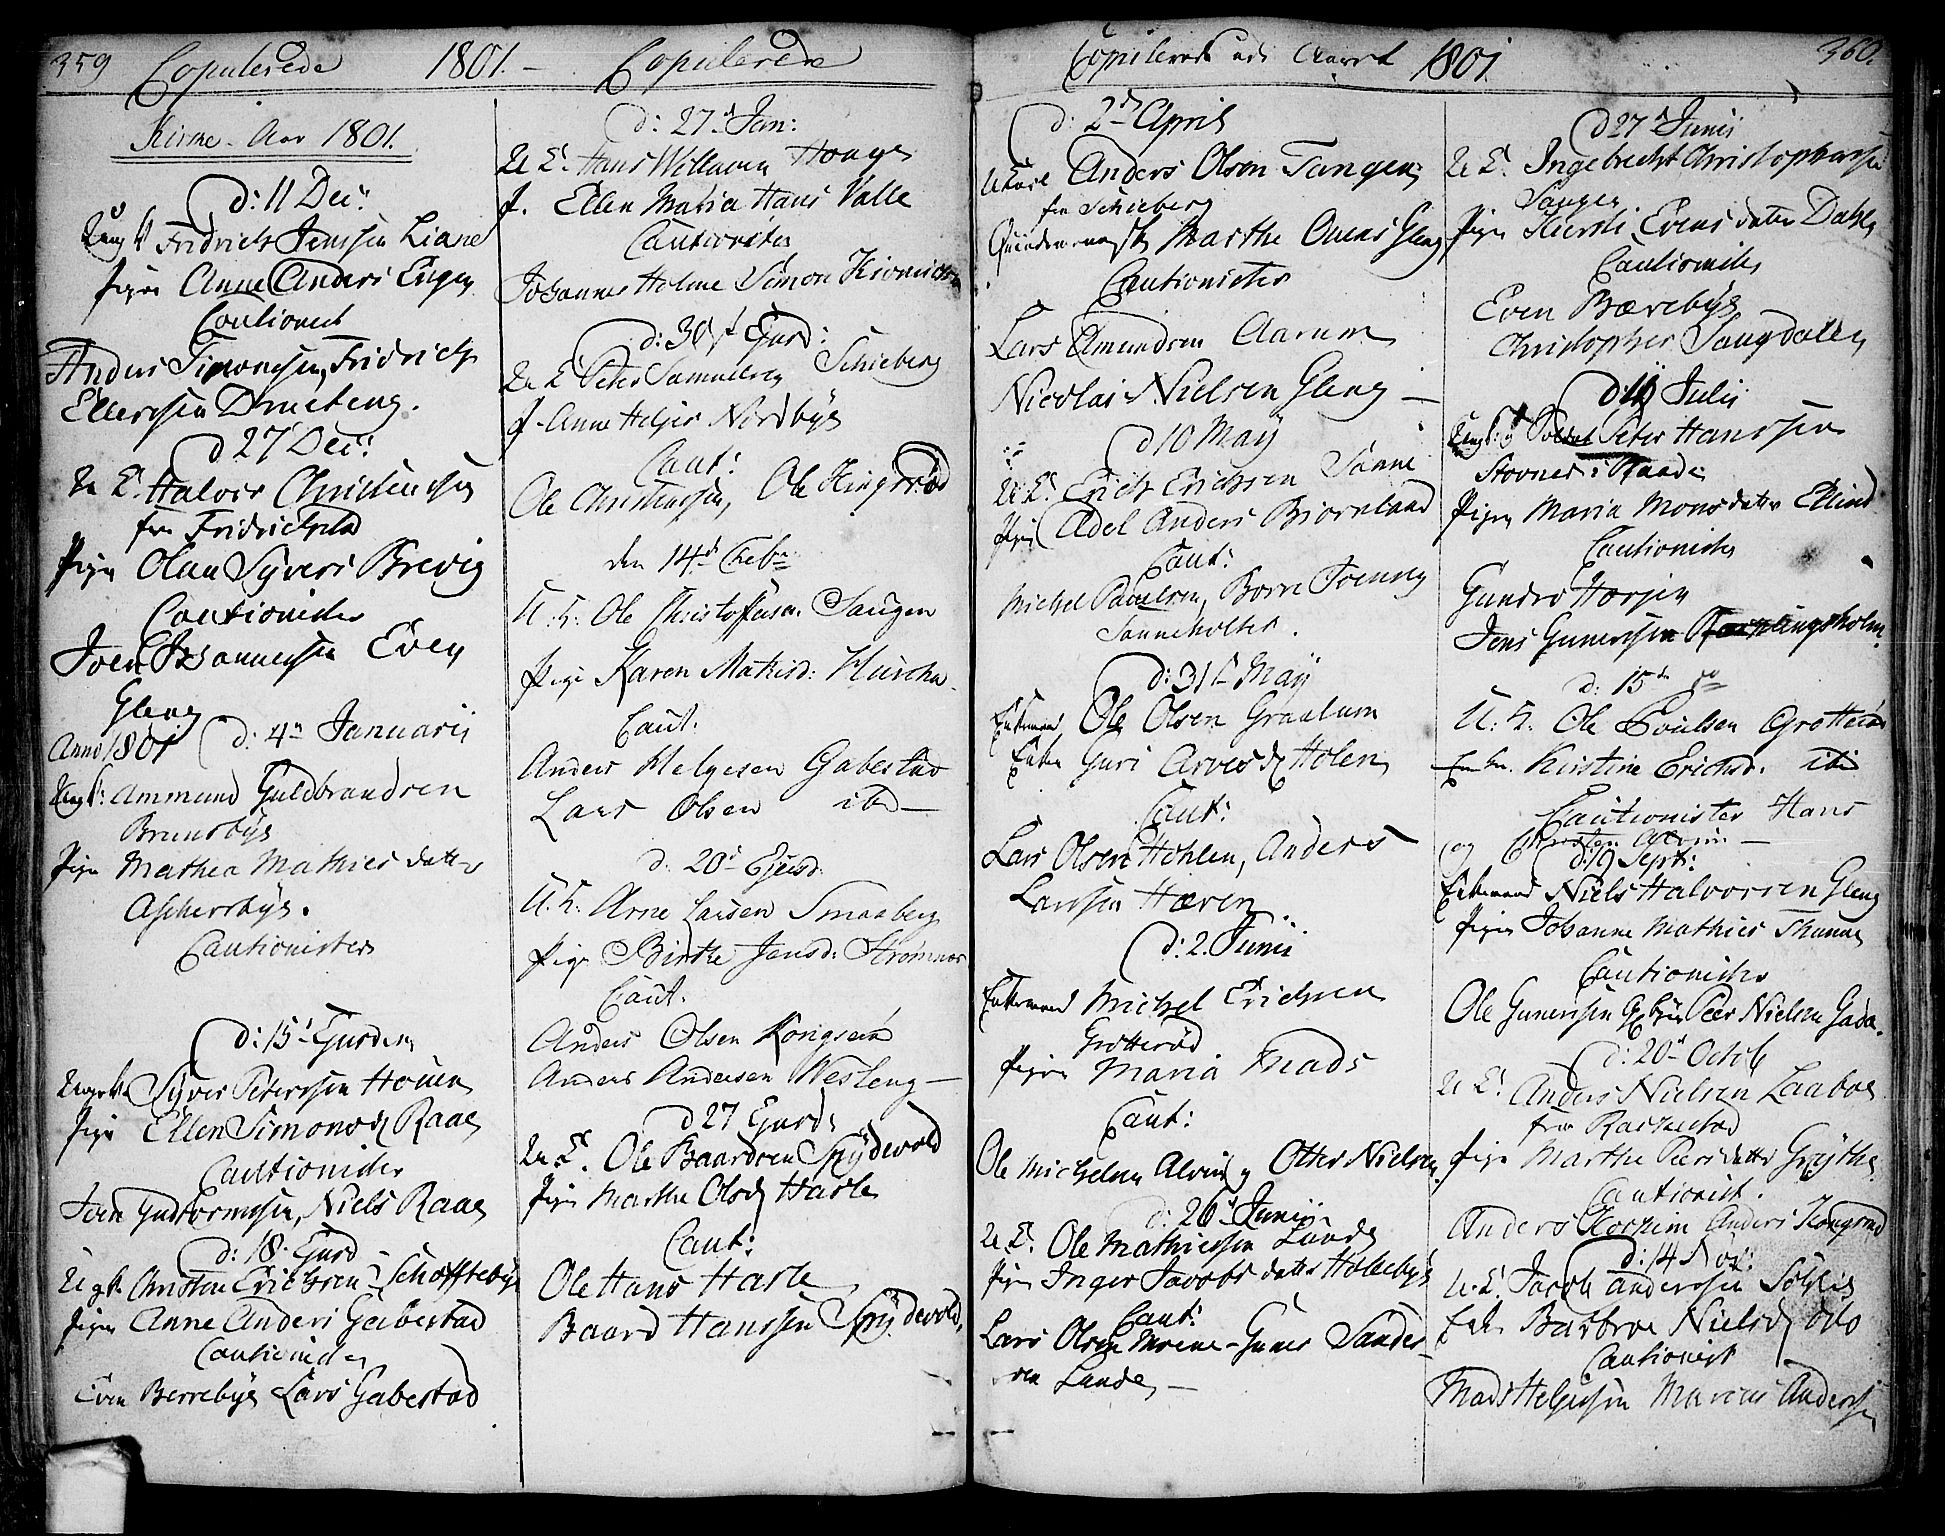 359 Copulerede 1801. — Copulerede
Kirke-Aar 1801.
d: 11 Dec:
Ungk Fridrich Jenssen Liane
Pigen Anne Anders Engen
Cautionist
Anders Simonssen, Fridrich
Ellerssen
d 27 Dec:
U. K. Halvor Christenssen
fra Fridrichstad
Pigen Olau Syvers Brevig
Cautionister
Joen Johannessen Even
Gleng
Anno 1801 d: 4de Januarii
Ungk: Ammund Guldbrandsen
Brunsbye
Pigen Mathea Mathies datter
Aschersbye.
Cautionister
d: 15de Ejusdem
Ungk Syver Peterssen Houen
Pigen Ellen Simonsd Raae
Cautionister
Joen Gudtormssen, Niels Raae
d: 18. Ejusd
Ugk. Christen Erichsen Schofftebye
Pigen Anne Anders Gabestad
Cautionister
Even Berrebye Lars Gabestad
d: 27de Jan:
U K. Hans Willumsen Hauge
P. Ellen Maria Hans Valle
Cautionister
Johannes Holme Simon
d: 30te Ejusd:
U K Peter Samuelsen Schieberg
P. Anne Helgis Nordbye
Caut:
Ole Christenssen, Ole Kingsrød
den 14de Febr
U: K: Ole Christoffersen Saugen
Pige Karen Mathisd:
Caut.
Anders Helgesen Gabestad
Lars Olsen ibd —
d. 20de Ejusd.
U. K. Arne Larsen Smaaberg
Pige Birthe Jensd: Strømnes
Caut.
Anders Olsen Kongsrød
Anders Andersen Westeng —
d 27 Ejusd:
U. K. Ole Baardsen Spydevold
Pigen Marthe Olsd Hasle
Caut:
Ole Hans Hasle
Baard Hanssen Spydevold.
Copulerede udi Aaret 1801. 360.
d: 2den April
U Karl Anders Olsen Tangen
fra Schieberg
Quindemennesk Marthe Ouens Gleng
Cautionister
Lars Amundsen Aarum
Nicolai Nielsen Gleng —
d 10 May
U. K. Erich Erichsen Sanne
Pigen Adel Anders Biørnland
Caut:
Michel Paulsen, Borre Joenseng
Sanneholter.
d: 31te May
Enkemand Ole Olsen Graalum
Enken Guri Arvesd Holen
Caut:
Lars Olsen Hohlen, Anders
Larssen Hæren
d: 2. Junii
Enkemand Michel Erichsen
Grotterød
Pigen Maria Mads
Caut:
Ole Michelsen Alvim, Otter Nielsen
d. 26de Junii
U. K. Ole Mathiessen Lunde
Pigen Inger Jacobs datter Hollebye
Caut:
Lars Olsen Moene - Gunder Sander-
sen Lande —
d 27de Junii
U K. Ingebrecht Christophersen
Saugen
Pigen Kiersti Evens datter Dahl
Cautionister
Even Bærebye
Christopher Saugdalen
d 11 Julii
Ungk: Soldat Peter Hanssen
Stovner i Raade
Pigen Maria Mons datter Elind
Cautionister
Gunder Horgen
Jens Gunerssen
d: 15de
U. K. Ole Poulsen Grotterød
Enken. Kirstine Erichsd. ibd
Cautionister Hans
og Christen Alvim —
d: 9 Sept:
Enkemand Niels Halvorsen Gleng
Pigen Johanne Mathies Thune
Cautionister
Ole Gunerssen Peer Nielsen Gada.
d: 20de Octob
U K. Anders Nielsen Laaboe
fra Rackestad
Pige Marthe Peers datter Grythe
Cautionist.
Anders Joachim Anders Kongsrød
d: 14 Nov:
U. K. Jacob Anderssen Solhii
Enken Barbroe Nielsd Oslo
Cautionist
Mads Helgessen Marcus Anderssen